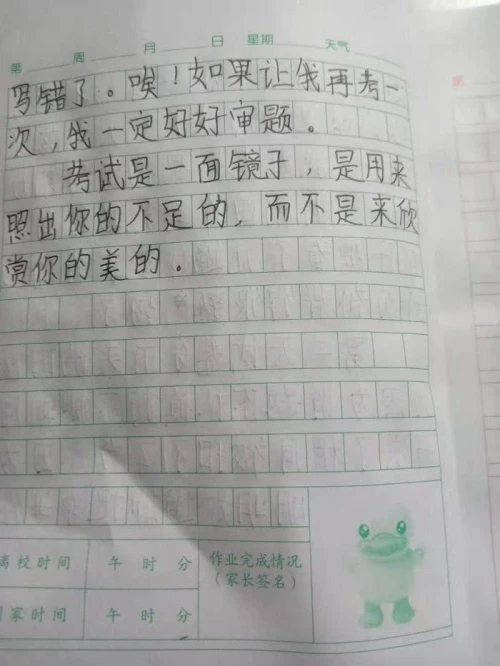 第 周 月 日 星期 天气
写错了。唉！如果让我再考一
次，我一定好好审题。
考试是一面镜子，是用来
照出你的不足的，而不是来欣
赏你的美的。
离校时间 午 时 分 作业完成情况
（家长签名）
家时间 午 时 分